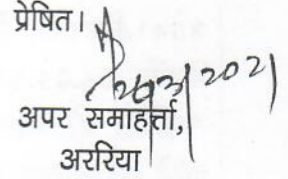 प्रेषित।
26/3/2021
अपर समाहर्त्ता,
अररिया